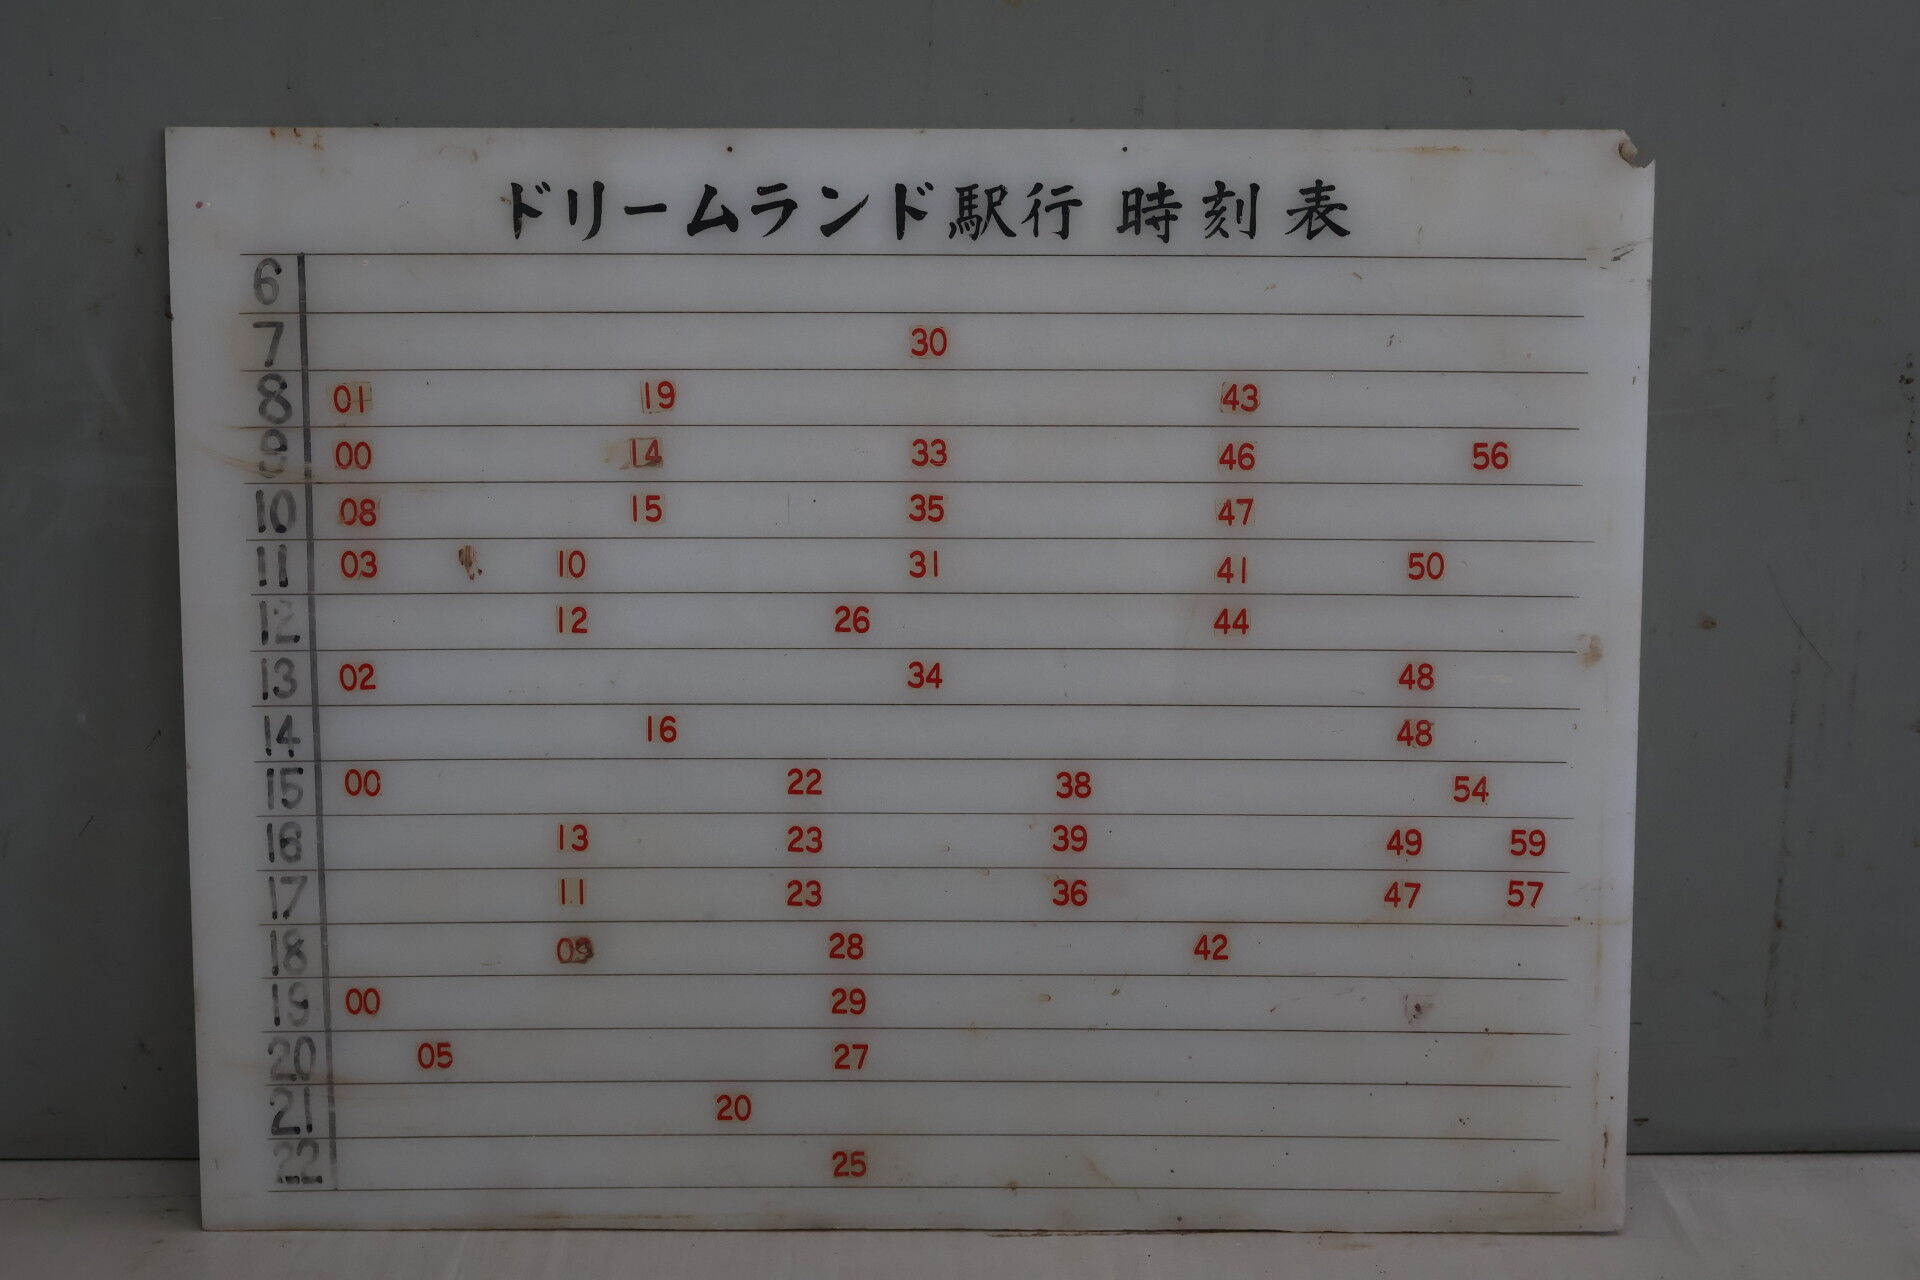 ドリームランド駅行 時刻表
6
7 30
8 01 19 43
9 00 14 33 46 56
10 08 15 35 47
11 03 10 31 41 50
12 12 26 44
13 02 34 48
14 16 48
15 00 22 38 54
16 13 23 39 49 59
17 11 23 36 47 57
18 09 28 42
19 00 29
20 05 27
21 20
22 25